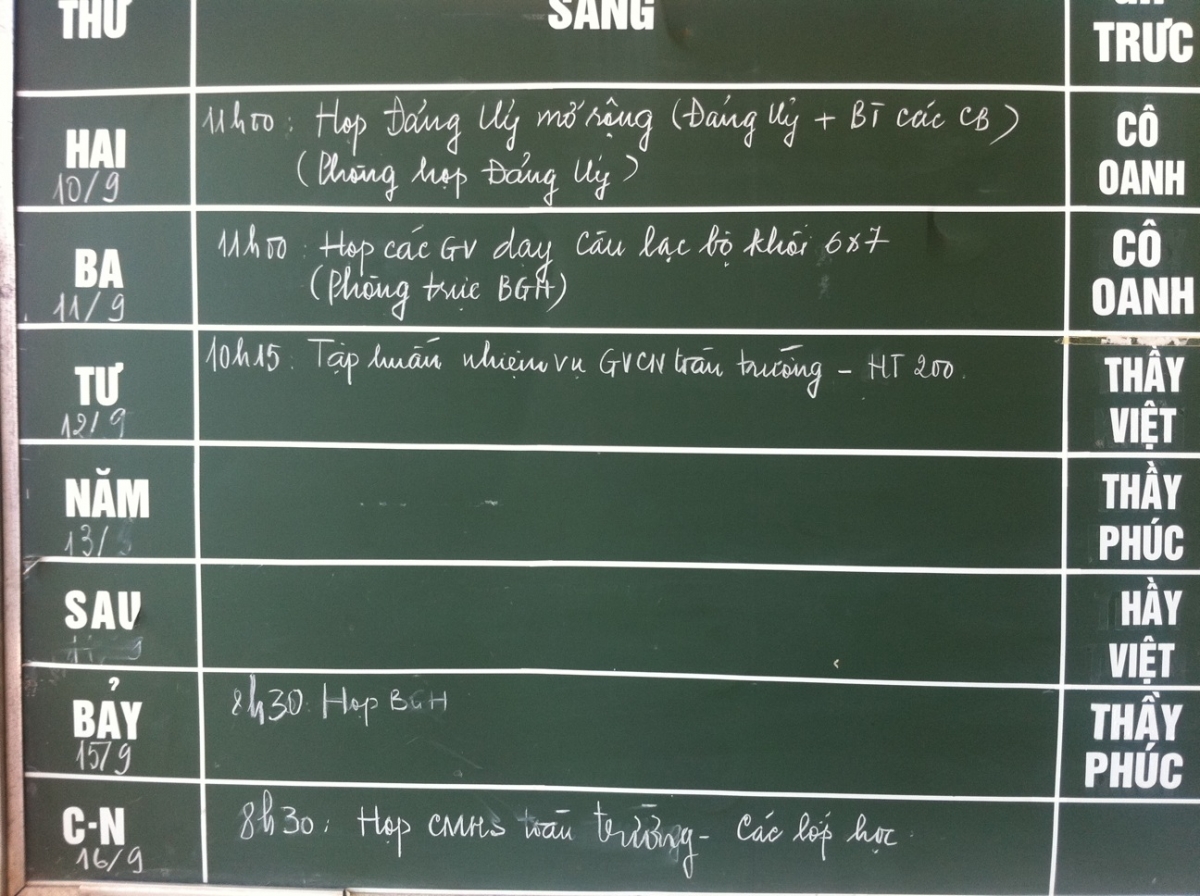 THỨ
SÁNG
TRỰC
HAI
10/9
11h00: Họp Đảng Uỷ mở rộng (Đảng Uỷ + BT các CB)
(Phòng họp Đảng Uỷ)
CÔ
OANH
BA
11/9
11h00: Họp các GV dạy Câu lạc bộ khối 6&7
(Phòng trực BGH)
CÔ
OANH
TƯ
12/9
10h15: Tập huấn nhiệm vụ GVCN toàn trường - HT 200.
THẦY
VIỆT
NĂM
13/
THẦY
PHÚC
SAU
HẦY
VIỆT
BẢY
15/9
8h30: Họp BGH
THẦY
PHÚC
C-N
16/9
8h30: Họp CMHS toàn trường - Các lớp học.